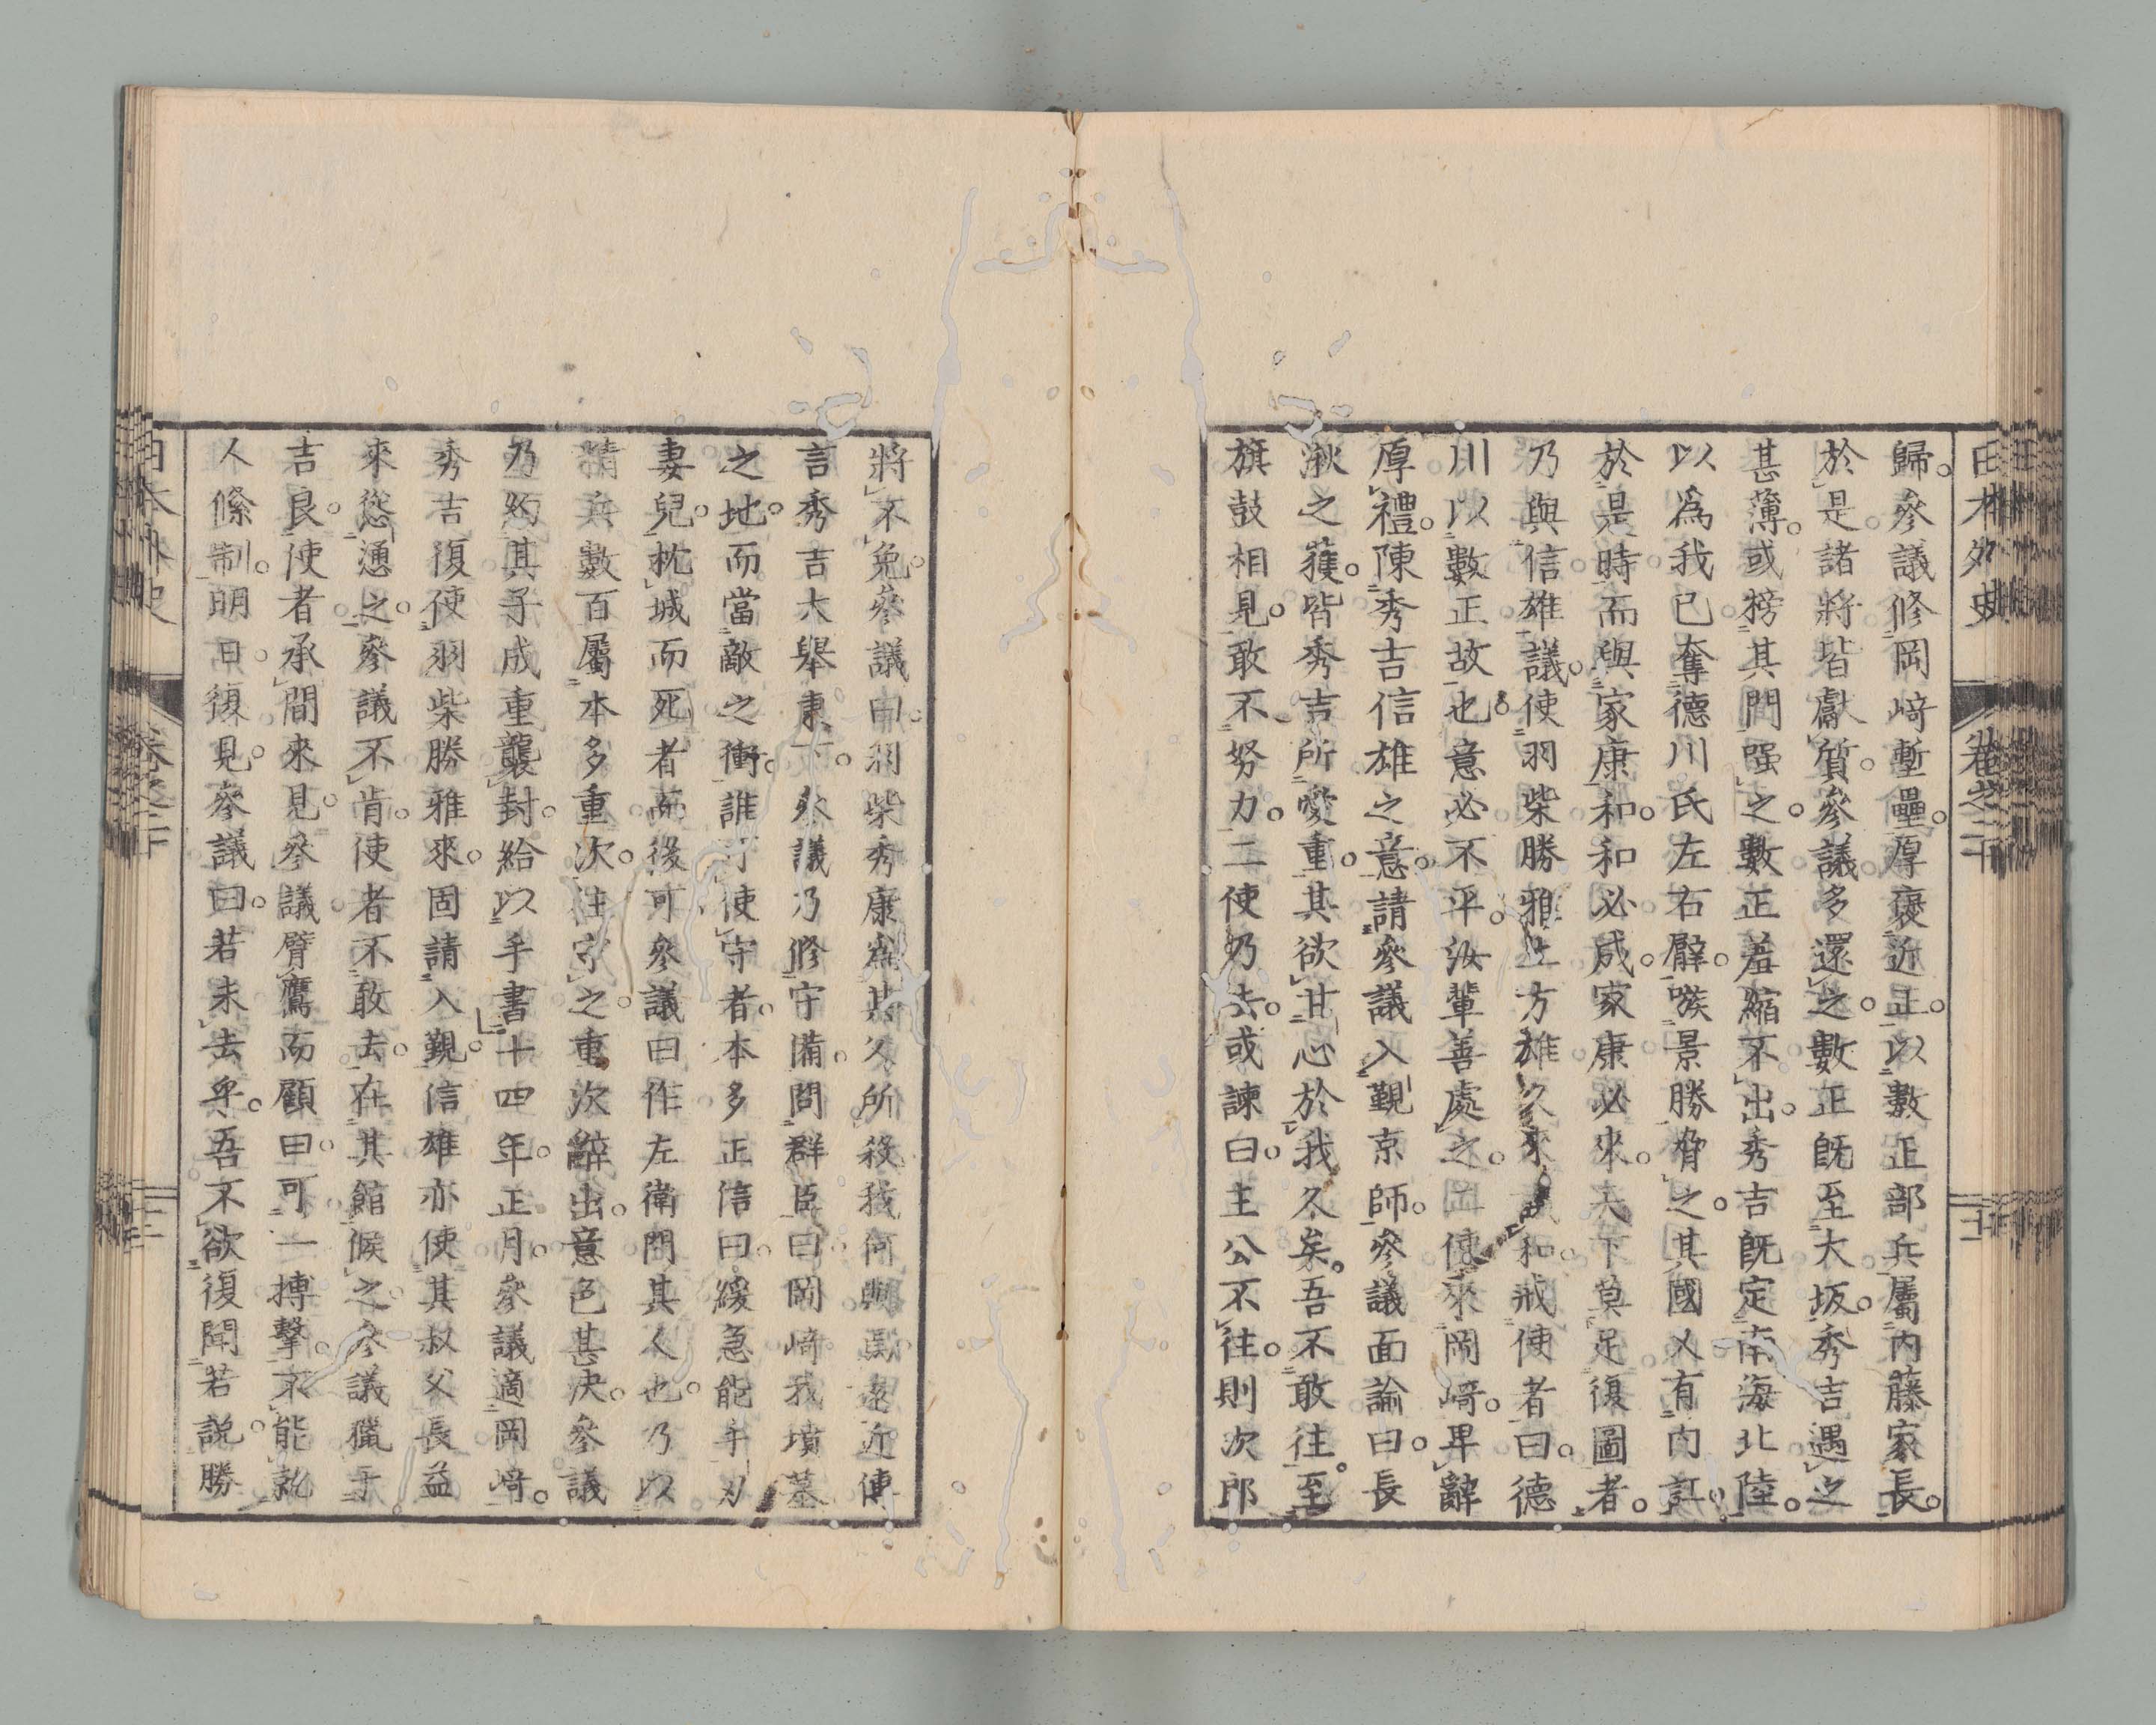 日本外史 卷之二十
歸。參議修岡崎塹壘。厚褒近正。以數正部兵屬内藤家長。
於是諸將皆獻質。參議多還之。數正既至大坂。秀吉遇之
甚薄。或榜其門强之。數正羞縮不出。秀吉既定南海北陸。
以爲我已奪德川氏左右臂。嗾景勝脅之。其國又有内訌。
於是時而與家康和。和必成。家康必來。天下莫足復圖者。
乃與信雄議。使羽柴勝雅土方雄久來議和。戒使者曰。德
川以數正故也。意必不平。汝輩善處之。二使來岡崎。卑辭
厚禮。陳秀吉信雄之意。請參議入覲京師。參議面諭曰。長
湫之獲。皆秀吉所愛重。其欲甘心於我久矣。吾不敢往。至
旗鼓相見。敢不努力。二使乃去。或諫曰。主公不往。則次郎
將不免。參議曰。羽柴秀康爲其父所殺。我何與焉。遠近傳
言秀吉大舉東下。參議乃修守備。問群臣曰。岡崎我墳墓
之地。而當敵之衝。誰可使守者。本多正信曰。緩急能手刃
妻兒。枕城而死者而後可。參議曰。作左衛門其人也。乃以
精兵數百屬本多重次。往守之。重次辭出。意色甚决。參議
乃約其子成重襲封。給以手書。十四年。正月。參議適岡崎。
秀吉復使羽柴勝雅來。固請入覲。信雄亦使其叔父長益
來慫慂之。參議不肯。使者不敢去。在其館候之。參議獵于
吉良。使者承間來見。參議臂鷹而顧曰。可一搏擊。不能就
人絛制。明日。復見。參議曰。若未去乎。吾不欲復聞若説。勝
日本外史 卷之二十